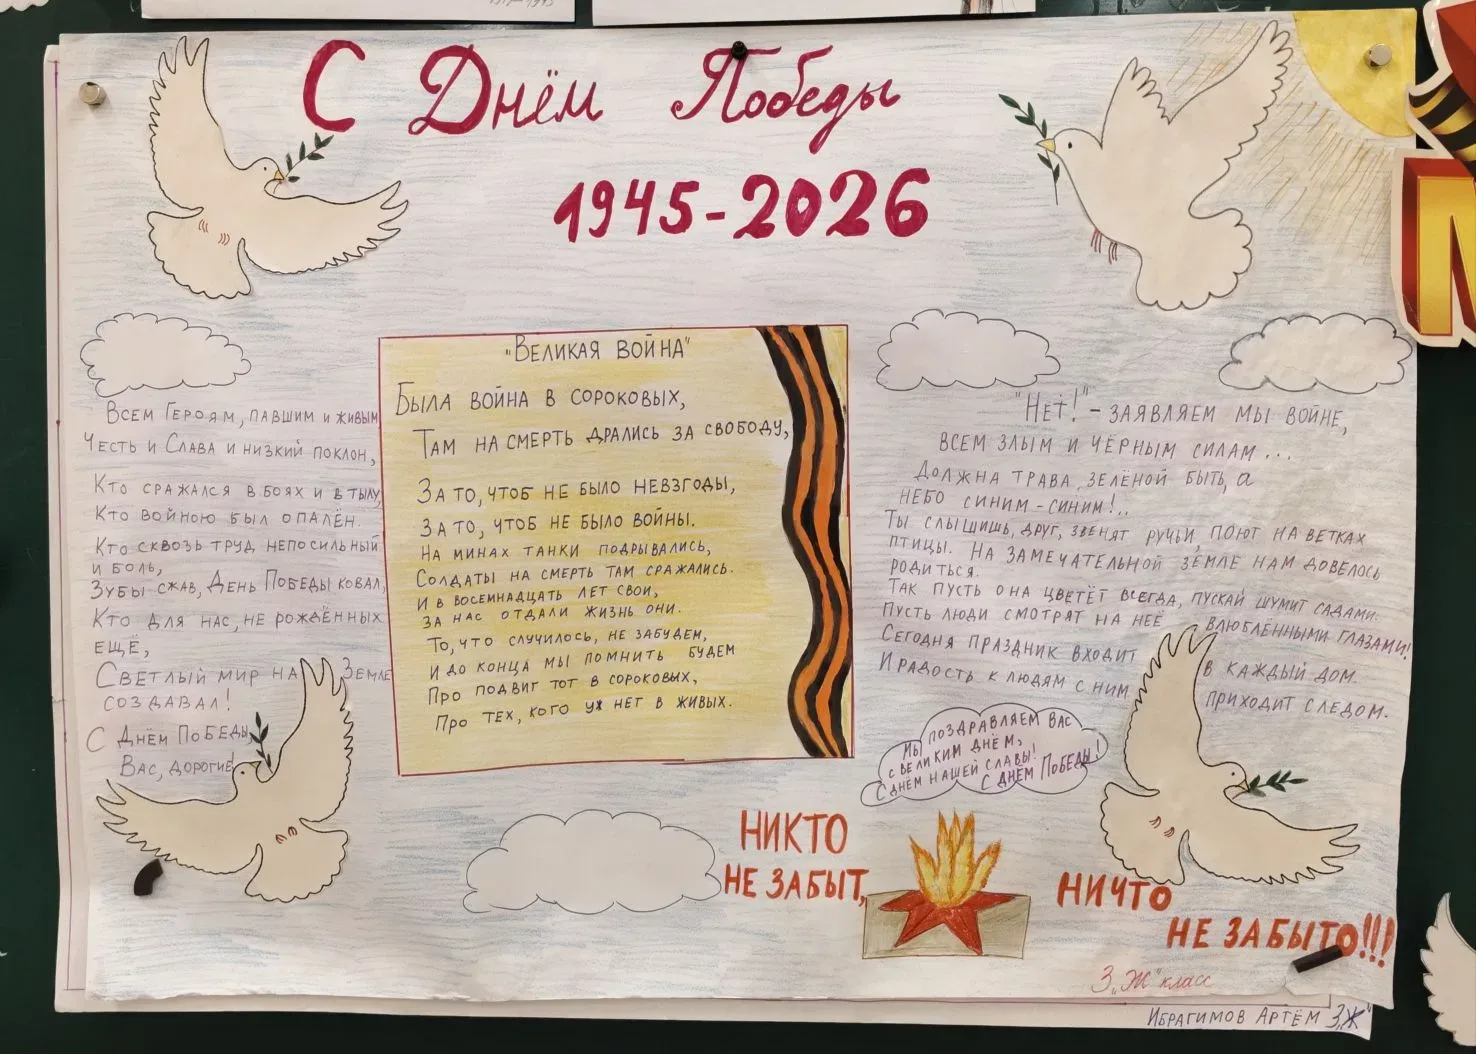 С Днём Победы
1945-2026
Всем Героям, павшим и живым
Честь и Слава и низкий поклон,
Кто сражался в боях и в тылу,
Кто войною был опалён.
Кто сквозь труд непосильный
и боль,
Зубы сжав, День Победы ковал,
Кто для нас, не рождённых
ещё,
Светлый мир на Земле
создавал!
С Днём Победы
Вас, дорогие!
"Великая война"
Была война в сороковых,
Там на смерть дрались за свободу,
За то, чтоб не было невзгоды,
За то, чтоб не было войны.
На минах танки подрывались,
Солдаты на смерть там сражались.
И в восемнадцать лет свои,
За нас отдали жизнь они.
То, что случилось, не забудем,
И до конца мы помнить будем
Про подвиг тот в сороковых,
Про тех, кого уж нет в живых.
"Нет!" - заявляем мы войне,
всем злым и чёрным силам...
Должна трава зелёной быть, а
небо синим-синим!..
Ты слышишь, друг, звенят ручьи, поют на ветках
птицы. На замечательной земле нам довелось
родиться.
Так пусть она цветёт всегда, пускай шумит садами.
Пусть люди смотрят на неё влюблёнными глазами!
Сегодня праздник входит в каждый дом.
И радость к людям с ним приходит следом.
Мы поздравляем вас
с великим днём,
С днём нашей славы!
С Днём Победы!
НИКТО
НЕ ЗАБЫТ,
НИЧТО
НЕ ЗАБЫТО!!!
3 „Ж" класс
Ибрагимов Артём 3„Ж"